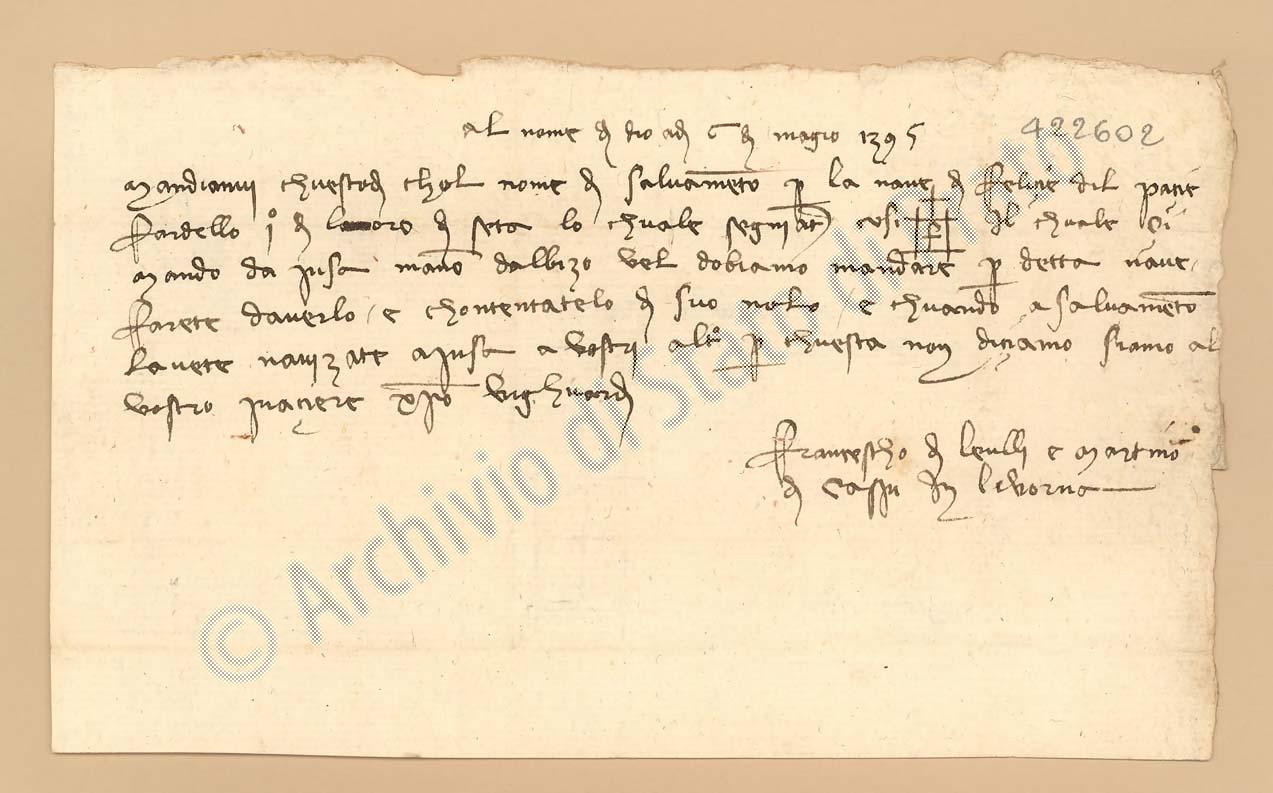 al nome di dio adi 6 di magio 1395
422602
mandianvi chuestodi chol nome di salvamēto p la nave di Felicie dil pacie
Fardello i° di lavoro di seta lo chuale segniato cosi il chuale ci
mando da pisa mano dalbizo vel dobiamo mandare p detta nave
Farete daverlo e chontentatelo di suo nolo e chuando a salvamēto
lavete navizate a pisa a vostri alt° p chuesta non diciamo siamo al
vostro piaciere xpo vighuardi
Franciescho di e martino
di in livorna
© Archivio di Stato di Prato